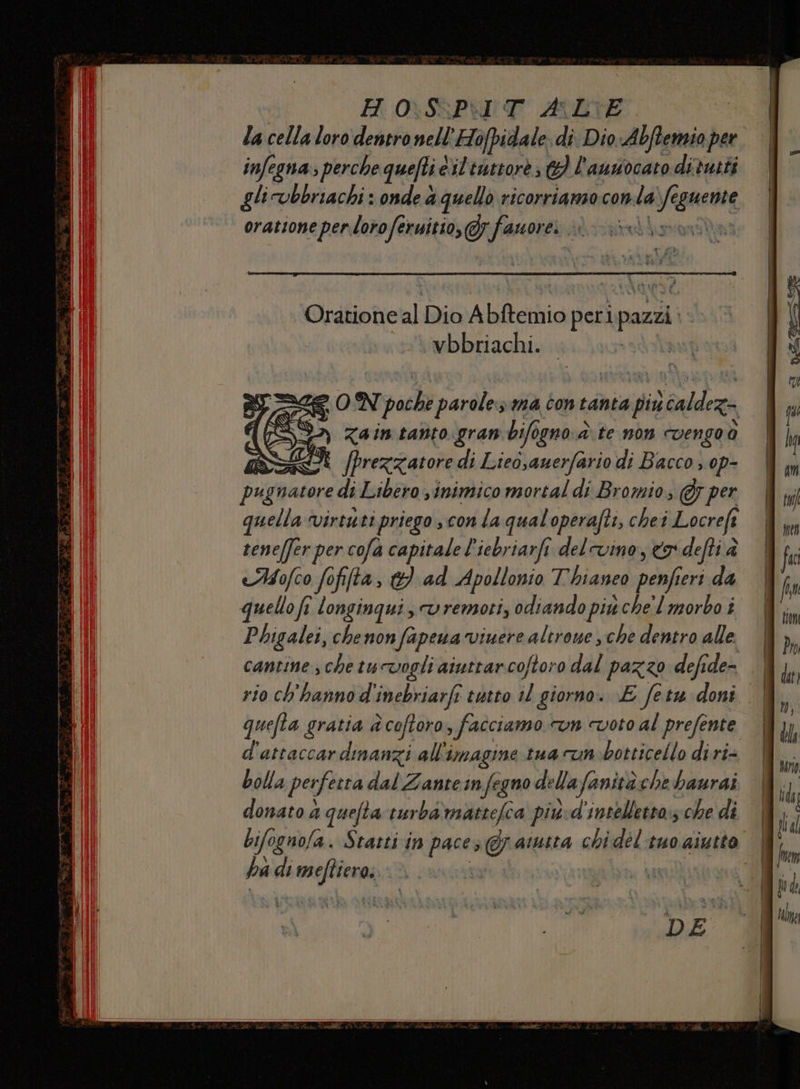 HOSPITALE
la cella loro dentro nell'Hoſpidale di Dio Abſtemio per
inſegna, perche queſti è il tuttore, & l'auuocato di tutti
gli vbbriachi: onde à quello ricorriamo con la ſeguente
oratione per loro ſeruitio, & fauore.
Oratione al Dio Abſtemio per i pazzi
vbbriachi.
CON poche parole, ma con tanta più caldez-
za in tanto gran biſogno à te non vengo ò
ſprezzatore di Lieò, auerſario di Bacco, op-
pugnatore di Libero, inimico mortal di Bromio, & per
quella virtù ti priego, con la qual operaſti, che i Locreſi
teneſſer per coſa capitale l'iebriarſi del vino, & deſti à
Moſco ſofiſta, & ad Apollonio Thianeo penſieri da
quello ſi longinqui, v remoti, odiando più che'l morbo i
Phigalei, che non ſapeua viuere altroue, che dentro alle
cantine, che tu vogli aiuttar coſtoro dal pazzo deſide-
rio ch'hanno d'inebriarſi tutto il giorno. E ſe tu doni
queſta gratia à coſtoro, facciamo vn voto al preſente
d'attaccar dinanzi all'imagine tua vn botticello di ri-
bolla perfetta dal Zante in ſegno della ſanità che haurai
donato à queſta turba matteſca più d'intelletto, che di
biſognoſa. Statti in pace, & aiutta chi del tuo aiutto
hà di meſtiero.
DE